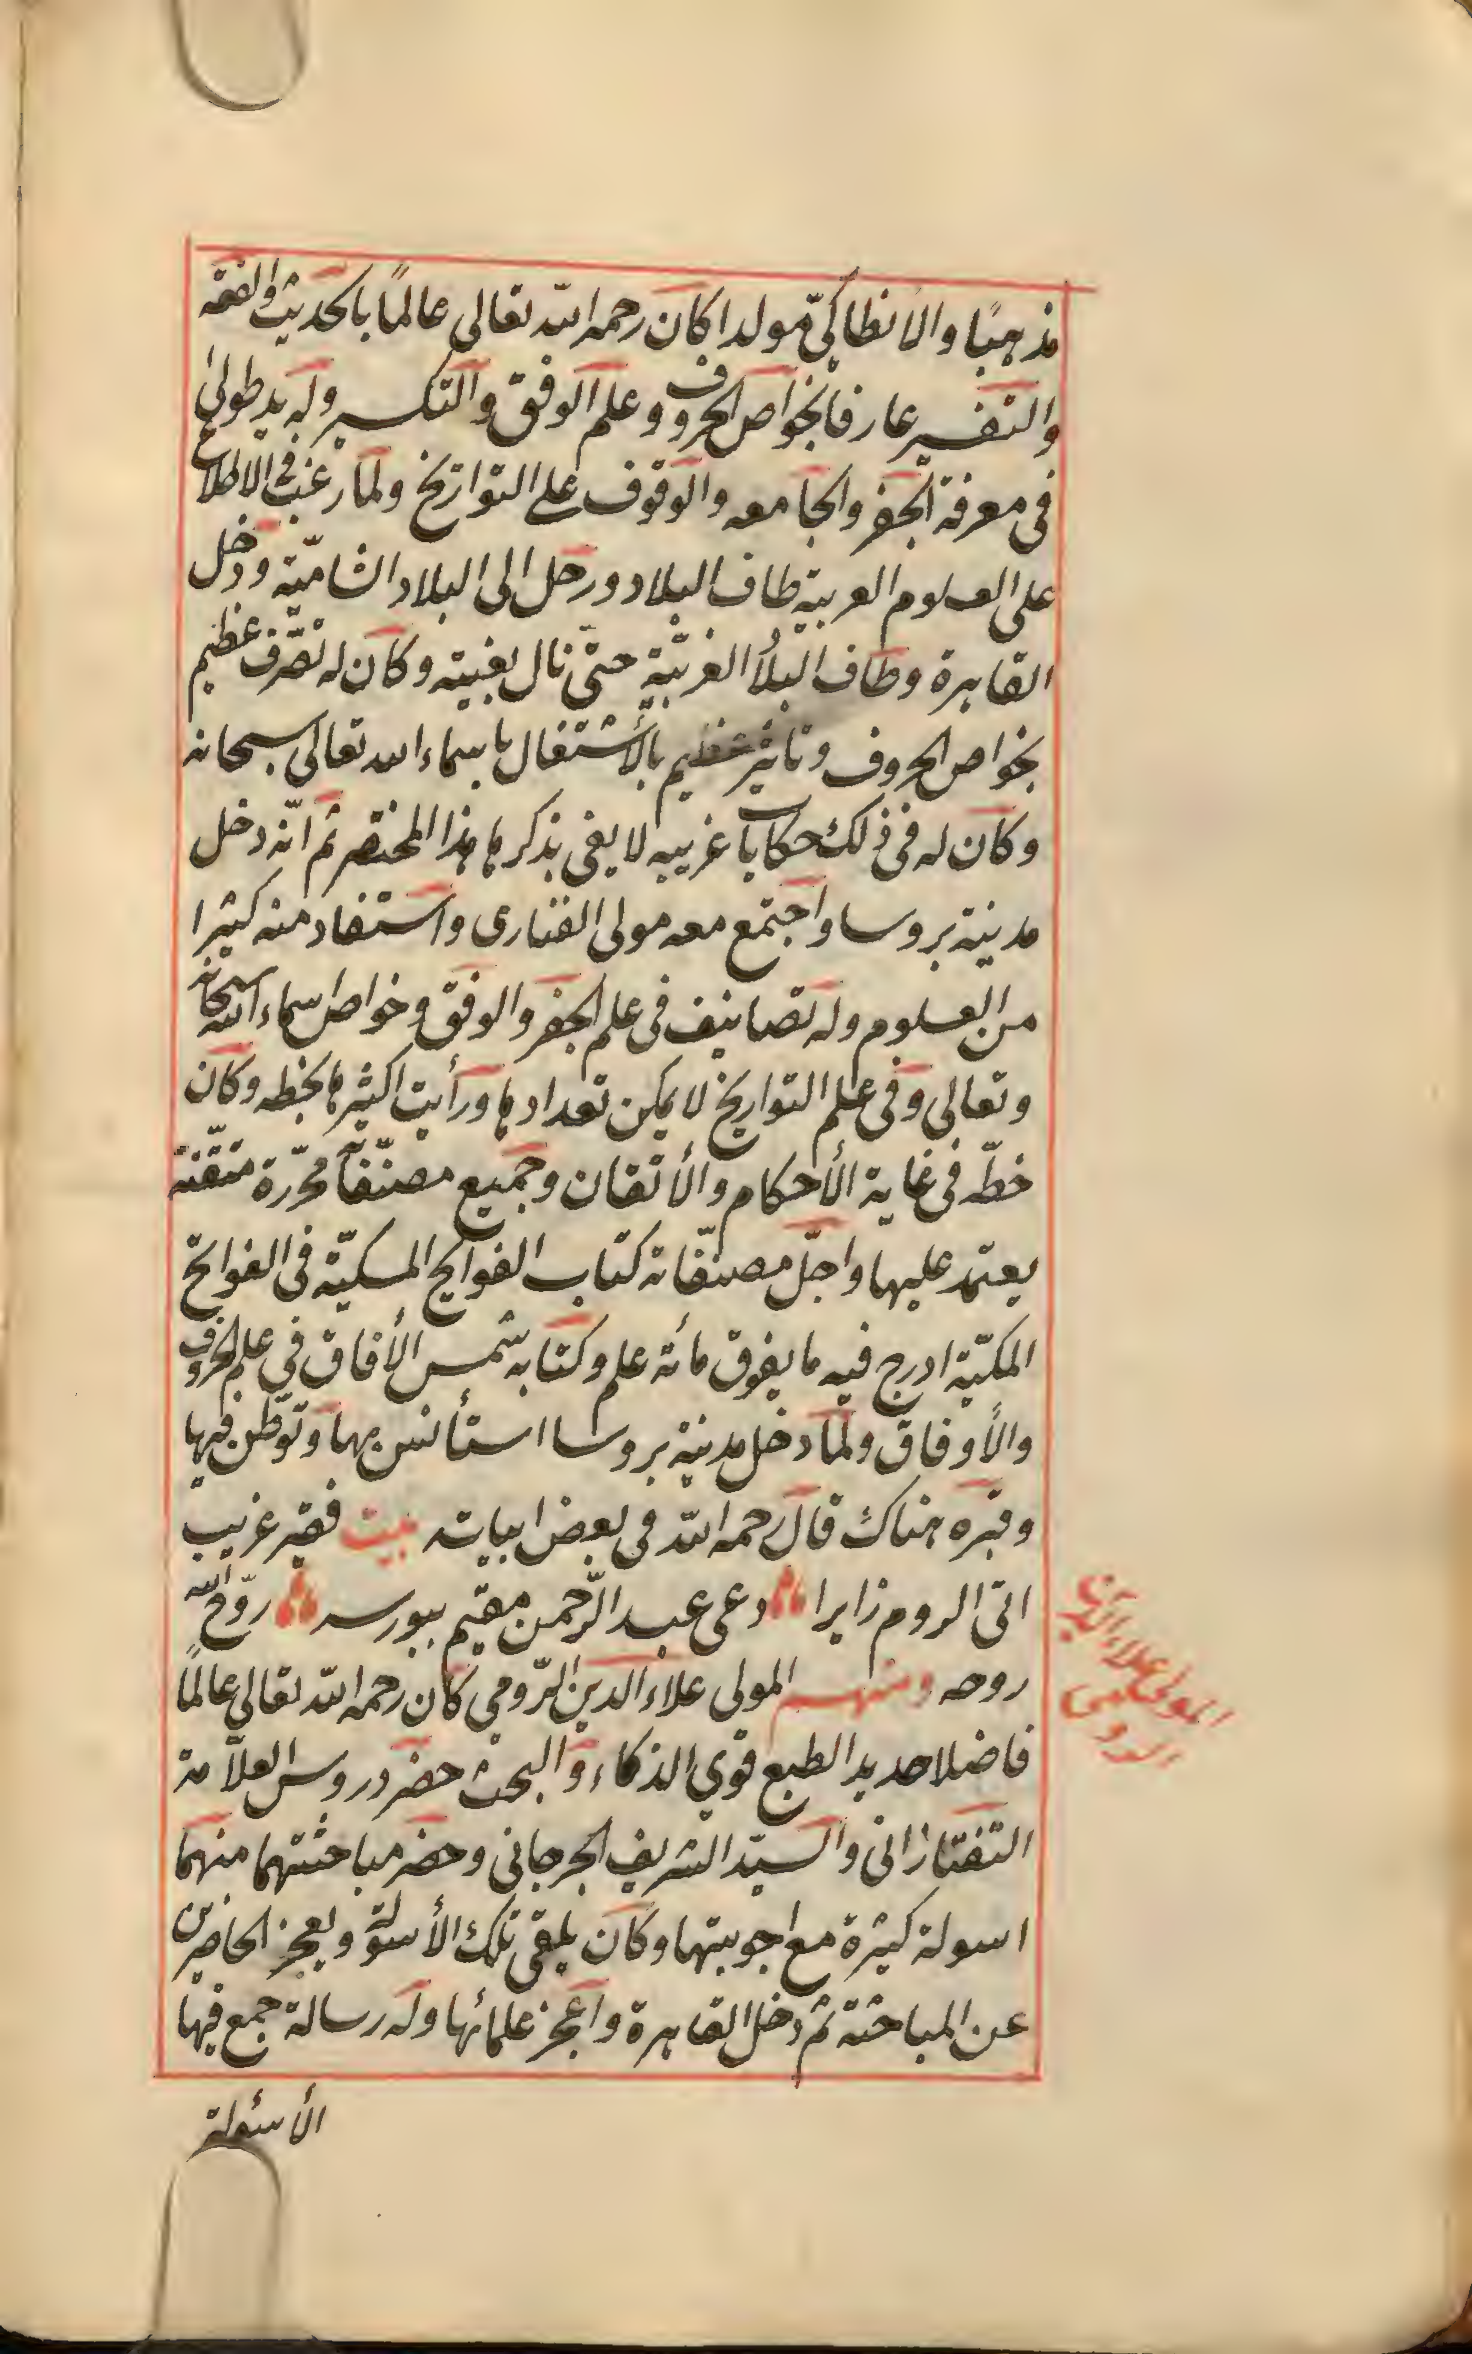 مذهبًا والانطاكيّ مولدا كان رحمه الله تعالى عالمًا بالحديث والفقه
والتفسير عارفا بخواص الحروف وعلم الوفق والتكسير وله يد طولىٰ
في معرفة الجفر والجامعه والوقوف على التواريخ ولما رغب في الاطلاع
على العلوم العربية طاف البلاد ورحل الى البلاد الشاميّة ودخل
القاهرة وطاف البلاد الغربيّة حتى نال بغيته وكان له تصّرف عظيم
بخواص الحروف وتاثير عظيم بالأشتغال باسماء الله تعالى سبحانه
وكان له في ذلك حكايات غريبه لا يفي بذكرها هذا المختصر ثم انّه دخل
مدينة بروسا واجتمع معه مولى الفنارى واستفاد منه كثيرا
من العلوم وله تصانيف في علم الجفر والوفق وخواص اسماء الله سبحانه
وتعالى وفي علم التواريخ لا يمكن تعدادها ورأيت اكثرها بخطه وكان
خطّه في غاية الأحكام والأتقان وجميع مصنّفاته محرّرة متقنة
يعتمد عليها واجلّ مصنّفاته كتاب الفوايح المسكيّة في الفواتح
المكيّة ادرج فيه ما يفوق مأئة علم وكتابه شمس الأفاق في علم الحروف
والأوفاق ولما دخل مدينة بروسا استأنس بها وتوطّن فيها
وقبره هناك قال رحمه الله في بعض ابياته بيت فقير غريب
اتى الروم زايرا دعى عبد الرّحمن مقيم ببورسه روّح الله
روحه ومنهم المولى علاء الدين الرّومي كان رحمه الله تعالى عالمًا
فاضلا حديد الطبع قوي الذكاء والبحث حضر دروس العلّامة
التفتازانى والسيّد الشريف الجرجاني وحضر مباحثتهما منهما
اسولة كثيرة مع اجوبتها وكان يلقي تلك الأسولة ويعجز الحاضرين
عن المباحثة ثم دخل القاهرة واعجز علمائها وله رسالة جمع فيها
الأسئولة
المولى علاء الدين
الرومى